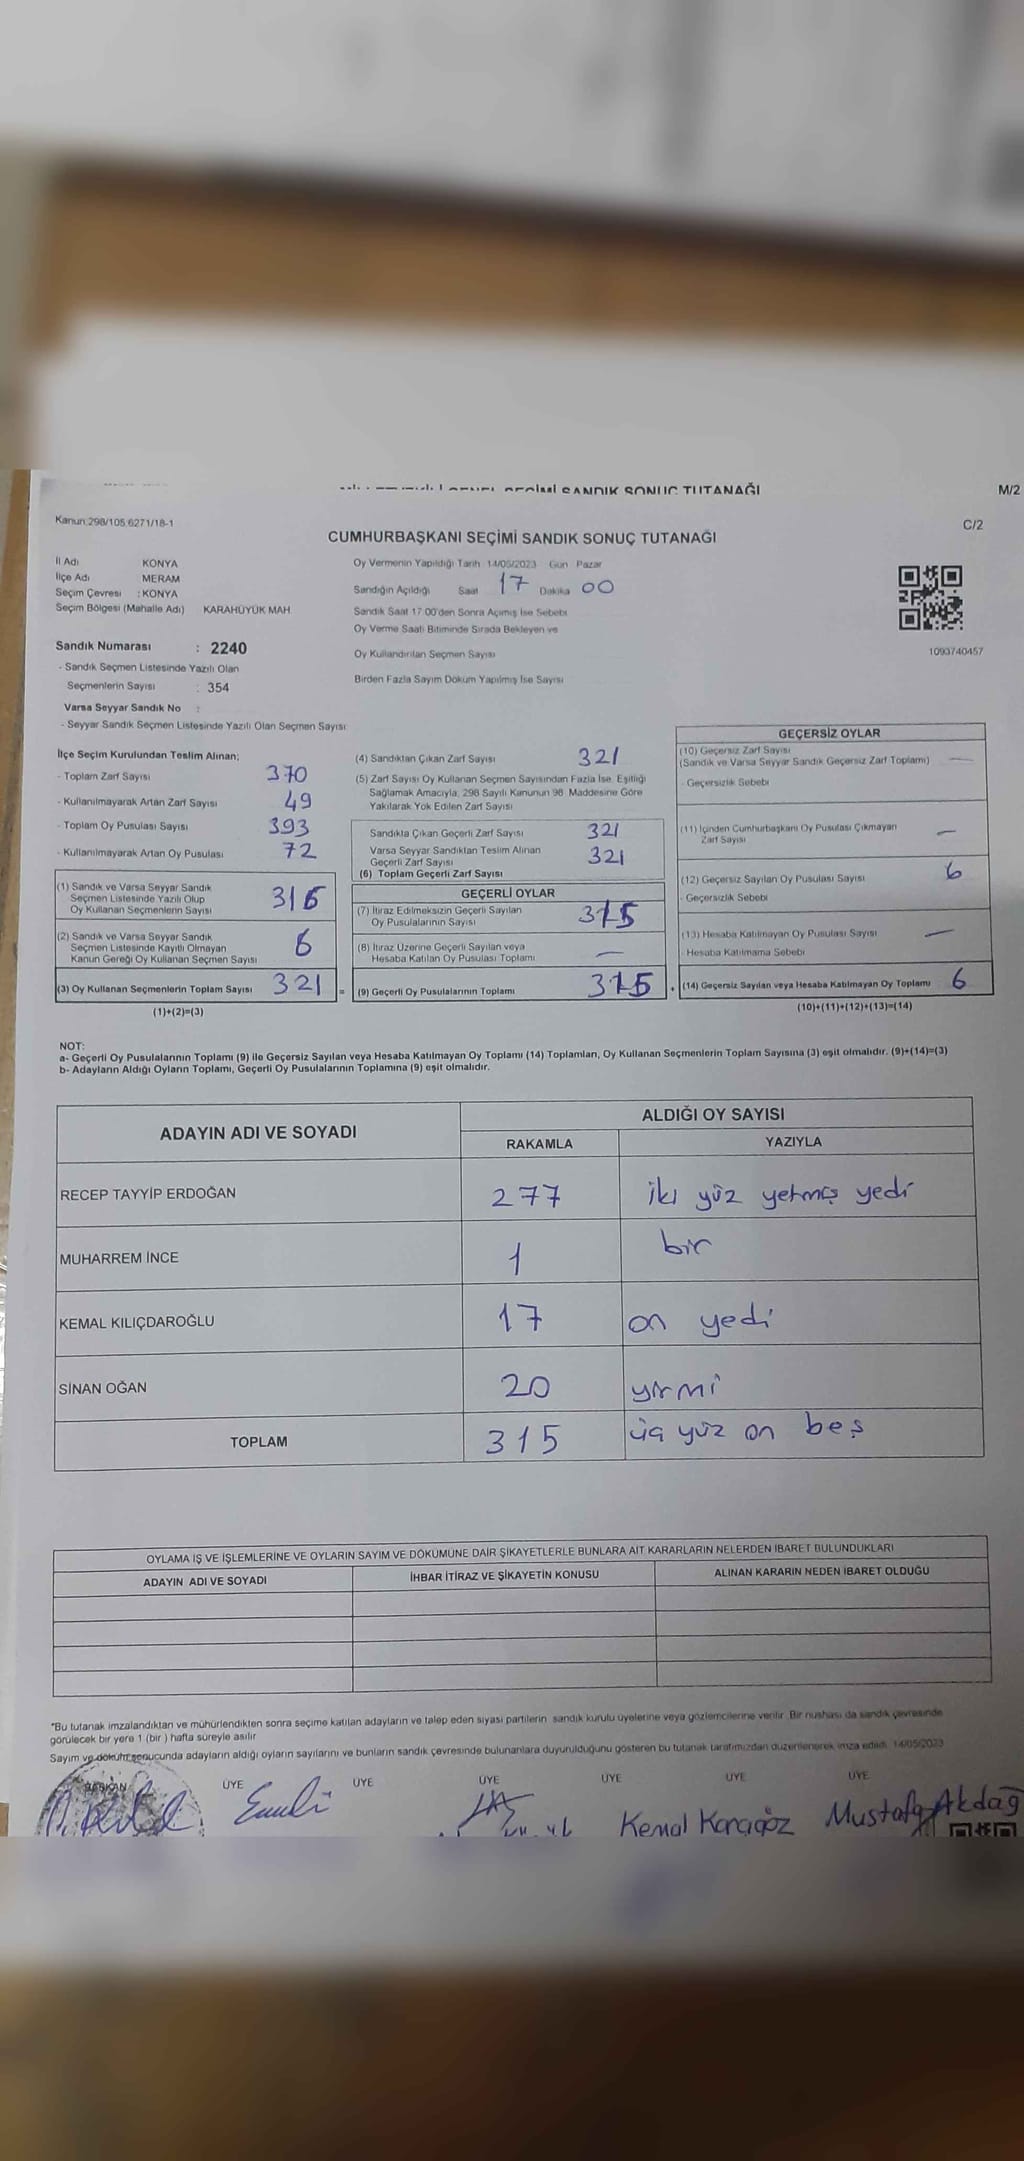 SEÇİMİ SANDIK SONUÇ TUTANAĞI
M/2
Kanun:298/105,6271/18-1
C/2
CUMHURBAŞKANI SEÇİMİ SANDIK SONUÇ TUTANAĞI
İl Adı KONYA
İlçe Adı MERAM
Seçim Çevresi : KONYA
Seçim Bölgesi (Mahalle Adı) KARAHÜYÜK MAH.
Oy Vermenin Yapıldığı Tarih 14/05/2023 Gün Pazar
Sandığın Açıldığı Saat 17 Dakika 00
Sandık Saat 17.00'den Sonra Açılmış İse Sebebi
Oy Verme Saati Bitiminde Sırada Bekleyen ve
Oy Kullandırılan Seçmen Sayısı
Birden Fazla Sayım Döküm Yapılmış İse Sayısı
1093740457
Sandık Numarası : 2240
- Sandık Seçmen Listesinde Yazılı Olan
Seçmenlerin Sayısı : 354
Varsa Seyyar Sandık No :
- Seyyar Sandık Seçmen Listesinde Yazılı Olan Seçmen Sayısı:
İlçe Seçim Kurulundan Teslim Alınan;
- Toplam Zarf Sayısı 370
- Kullanılmayarak Artan Zarf Sayısı 49
- Toplam Oy Pusulası Sayısı 393
- Kullanılmayarak Artan Oy Pusulası 72
(1) Sandık ve Varsa Seyyar Sandık
Seçmen Listesinde Yazılı Olup
Oy Kullanan Seçmenlerin Sayısı 316
(2) Sandık ve Varsa Seyyar Sandık
Seçmen Listesinde Kayıtlı Olmayan
Kanun Gereği Oy Kullanan Seçmen Sayısı 6
(3) Oy Kullanan Seçmenlerin Toplam Sayısı 321 =
(1)+(2)=(3)
(4) Sandıktan Çıkan Zarf Sayısı 321
(5) Zarf Sayısı Oy Kullanan Seçmen Sayısından Fazla İse, Eşitliği
Sağlamak Amacıyla, 298 Sayılı Kanunun 98. Maddesine Göre
Yakılarak Yok Edilen Zarf Sayısı
Sandıkta Çıkan Geçerli Zarf Sayısı 321
Varsa Seyyar Sandıktan Teslim Alınan
Geçerli Zarf Sayısı
(6) Toplam Geçerli Zarf Sayısı 321
GEÇERLİ OYLAR
(7) İtiraz Edilmeksizin Geçerli Sayılan
Oy Pusulalarının Sayısı 315
(8) İtiraz Üzerine Geçerli Sayılan veya
Hesaba Katılan Oy Pusulası Toplamı —
(9) Geçerli Oy Pusulalarının Toplamı 315 +
GEÇERSİZ OYLAR
(10) Geçersiz Zarf Sayısı
(Sandık ve Varsa Seyyar Sandık Geçersiz Zarf Toplamı) —
- Geçersizlik Sebebi
(11) İçinden Cumhurbaşkanı Oy Pusulası Çıkmayan
Zarf Sayısı —
(12) Geçersiz Sayılan Oy Pusulası Sayısı 6
- Geçersizlik Sebebi
(13) Hesaba Katılmayan Oy Pusulası Sayısı —
- Hesaba Katılmama Sebebi
(14) Geçersiz Sayılan veya Hesaba Katılmayan Oy Toplamı 6
(10)+(11)+(12)+(13)=(14)
NOT:
a- Geçerli Oy Pusulalarının Toplamı (9) ile Geçersiz Sayılan veya Hesaba Katılmayan Oy Toplamı (14) Toplamları, Oy Kullanan Seçmenlerin Toplam Sayısına (3) eşit olmalıdır. (9)+(14)=(3)
b- Adayların Aldığı Oyların Toplamı, Geçerli Oy Pusulalarının Toplamına (9) eşit olmalıdır.
ADAYIN ADI VE SOYADI
ALDIĞI OY SAYISI
RAKAMLA YAZIYLA
RECEP TAYYİP ERDOĞAN 277 iki yüz yetmiş yedi
MUHARREM İNCE 1 bir
KEMAL KILIÇDAROĞLU 17 on yedi
SİNAN OĞAN 20 yirmi
TOPLAM 315 üç yüz on beş
OYLAMA İŞ VE İŞLEMLERİNE VE OYLARIN SAYIM VE DÖKÜMÜNE DAİR ŞİKAYETLERLE BUNLARA AİT KARARLARIN NELERDEN İBARET BULUNDUKLARI
ADAYIN ADI VE SOYADI İHBAR İTİRAZ VE ŞİKAYETİN KONUSU ALINAN KARARIN NEDEN İBARET OLDUĞU
*Bu tutanak imzalandıktan ve mühürlendikten sonra seçime katılan adayların ve talep eden siyasi partilerin sandık kurulu üyelerine veya gözlemcilerine verilir. Bir nüshası da sandık çevresinde
görülecek bir yere 1 (bir ) hafta süreyle asılır
Sayım ve döküm sonucunda adayların aldığı oyların sayılarını ve bunların sandık çevresinde bulunanlara duyurulduğunu gösteren bu tutanak tarafımızdan düzenlenerek imza edildi. 14/05/2023
BAŞKAN ÜYE ÜYE ÜYE ÜYE ÜYE ÜYE
Kemal Karagöz Mustafa Akdağ